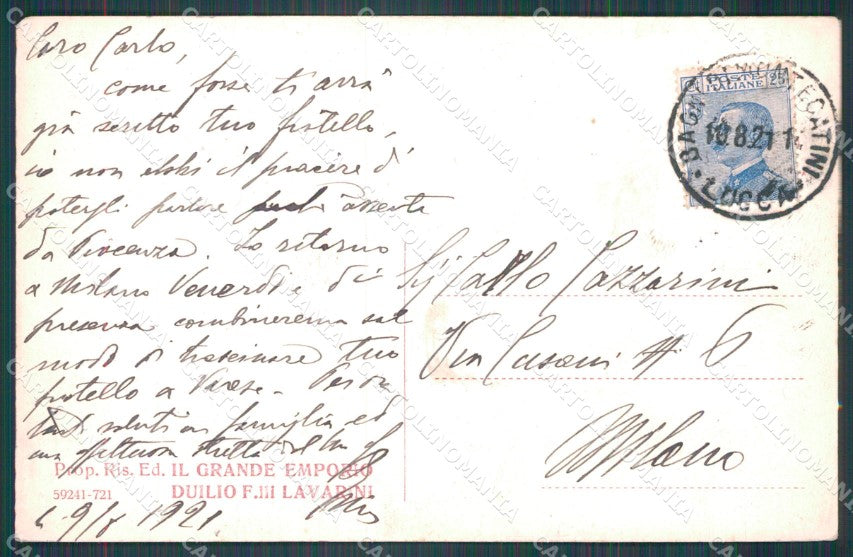 Caro Carlo,
come forse ti avrà
già scritto tuo fratello,
io non ebbi il piacere di
potergli parlare perché assente
da Vicenza. Io ritorno
a Milano Venerdì e di
presenza combineremo sul
modo di trascinare tuo
fratello a Varese.
saluti in famiglia ed
una affettuosa stretta
9/8 1921
Prop. Ris. Ed. IL GRANDE EMPORIO
59241-721 DUILIO F.III LAVARINI
POSTE ITALIANE 25
BAGNI MONTECATINI
10.8.21
LUCCA
Sig Carlo Lazzarini
Via Cusani N 6
Milano
CARTOLINOMANIA